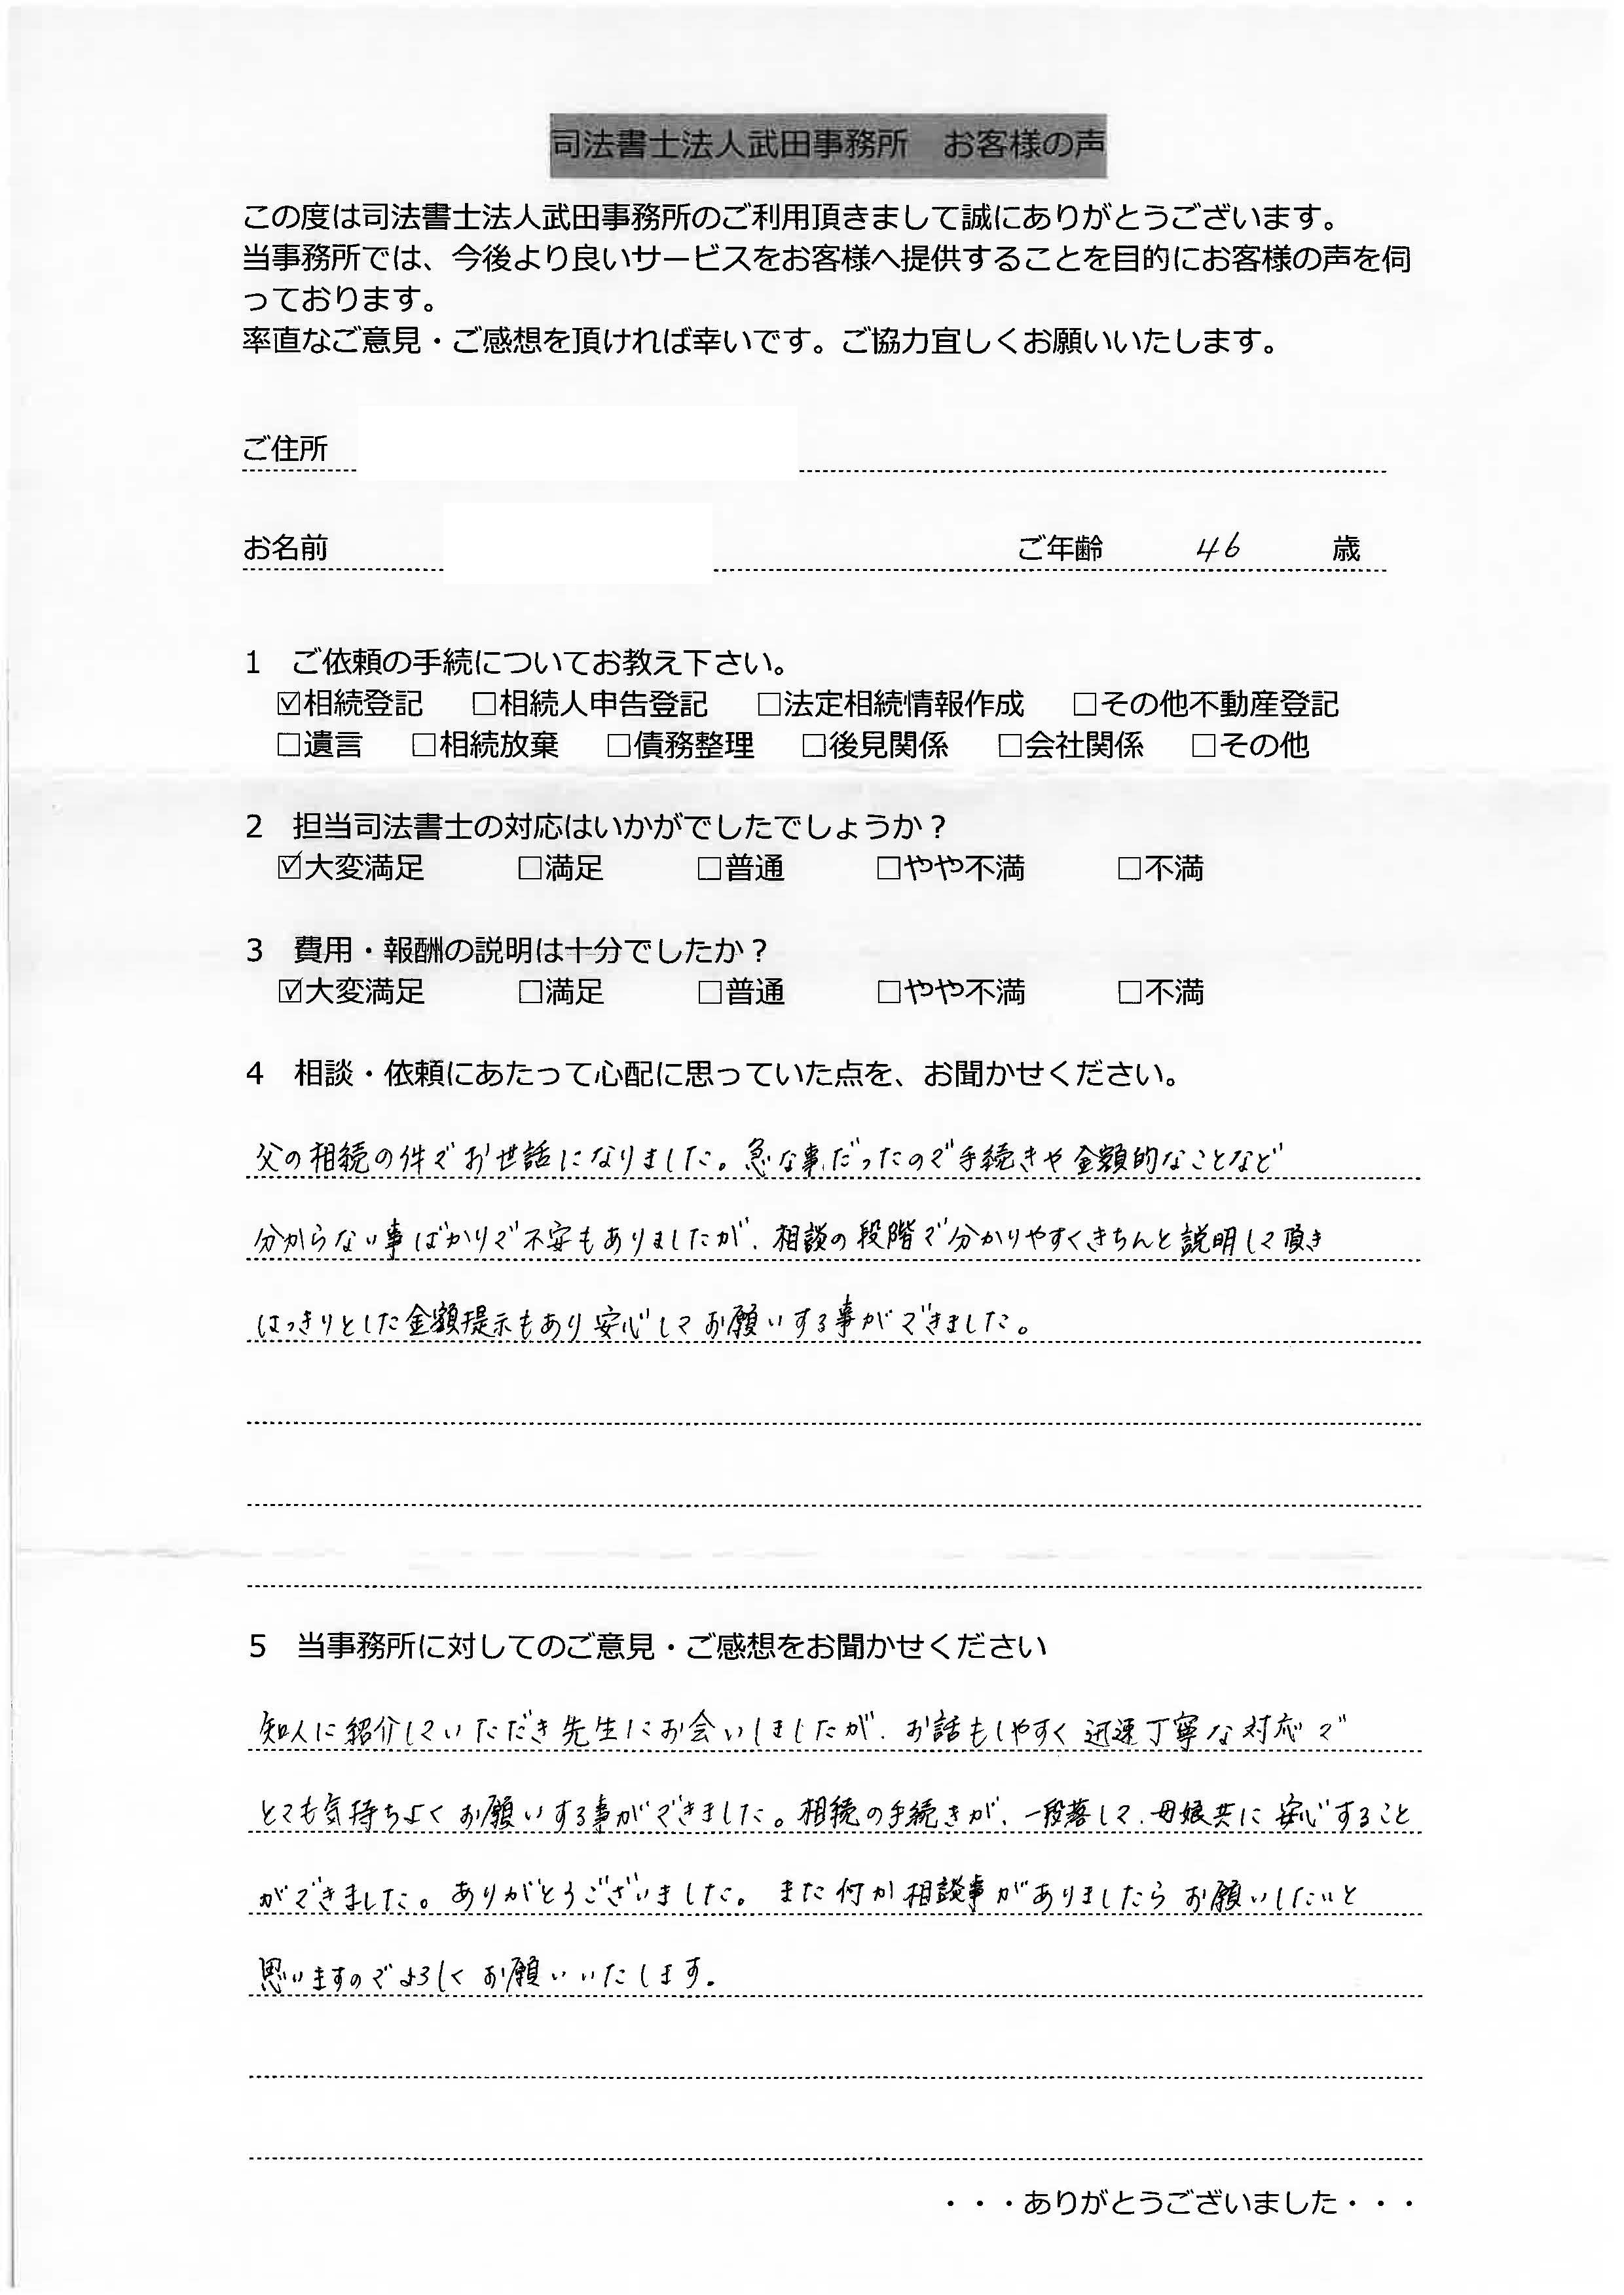 司法書士法人武田事務所　お客様の声
この度は司法書士法人武田事務所のご利用頂きまして誠にありがとうございます。
当事務所では、今後より良いサービスをお客様へ提供することを目的にお客様の声を伺
っております。
率直なご意見・ご感想を頂ければ幸いです。ご協力宜しくお願いいたします。
ご住所
お名前　ご年齢　46　歳
1　ご依頼の手続についてお教え下さい。
☑相続登記　□相続人申告登記　□法定相続情報作成　□その他不動産登記
□遺言　□相続放棄　□債務整理　□後見関係　□会社関係　□その他
2　担当司法書士の対応はいかがでしたでしょうか？
☑大変満足　□満足　□普通　□やや不満　□不満
3　費用・報酬の説明は十分でしたか？
☑大変満足　□満足　□普通　□やや不満　□不満
4　相談・依頼にあたって心配に思っていた点を、お聞かせください。
父の相続の件でお世話になりました。急な事だったので手続きや金額的なことなど
分からない事ばかりで不安もありましたが、相談の段階で分かりやすくきちんと説明して頂き
はっきりとした金額提示もあり安心してお願いする事ができました。
5　当事務所に対してのご意見・ご感想をお聞かせください
知人に紹介していただき先生にお会いしましたが、お話もしやすく迅速丁寧な対応で
とても気持ちよくお願いする事ができました。相続の手続きが、一段落して、母娘共に安心すること
ができました。ありがとうございました。また何か相談事がありましたらお願いしたいと
思いますのでよろしくお願いいたします。
・・・ありがとうございました・・・